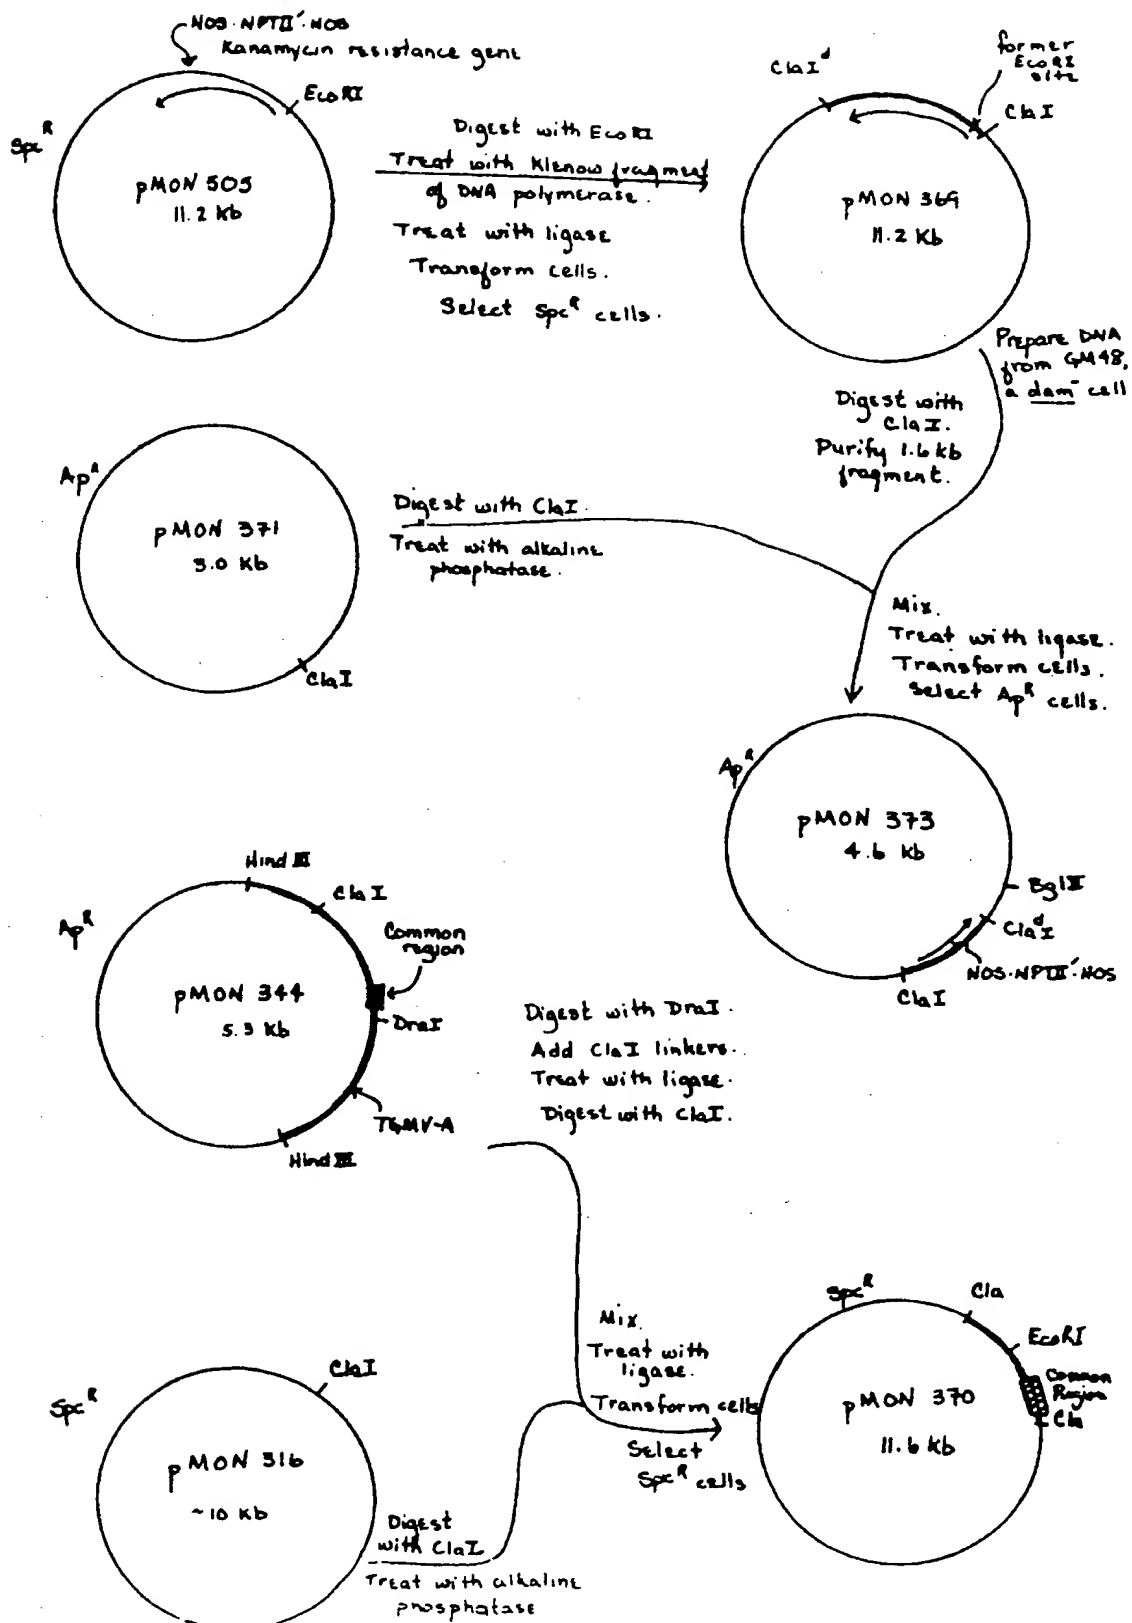 NOS·NPTII'·NOS
Kanamycin resistance gene
EcoRI
Spc^R
pMON 505
11.2 Kb
Digest with EcoRI
Treat with Klenow fragment
of DNA polymerase.
Treat with ligase
Transform cells.
Select Spc^R cells.
ClaI^d
former
EcoRI
site
ClaI
pMON 369
11.2 Kb
Prepare DNA
from GM48,
a dam^- cell
Digest with
ClaI.
Purify 1.6 kb
fragment.
Ap^R
pMON 371
3.0 Kb
ClaI
Digest with ClaI.
Treat with alkaline
phosphatase.
Mix.
Treat with ligase.
Transform cells.
Select Ap^R cells.
Ap^R
pMON 373
4.6 Kb
BglII
Cla^dI
NOS·NPTII'·NOS
ClaI
Hind III
ClaI
Ap^R
Common
region
pMON 344
5.3 Kb
DraI
TGMV-A
Hind III
Digest with DraI.
Add ClaI linkers.
Treat with ligase.
Digest with ClaI.
Mix.
Treat with
ligase.
Transform cells
Select
Spc^R cells
ClaI
Spc^R
pMON 316
~10 Kb
Digest
with ClaI
Treat with alkaline
phosphatase
Spc^R
Cla
EcoRI
Common
Region
Cla
pMON 370
11.6 Kb